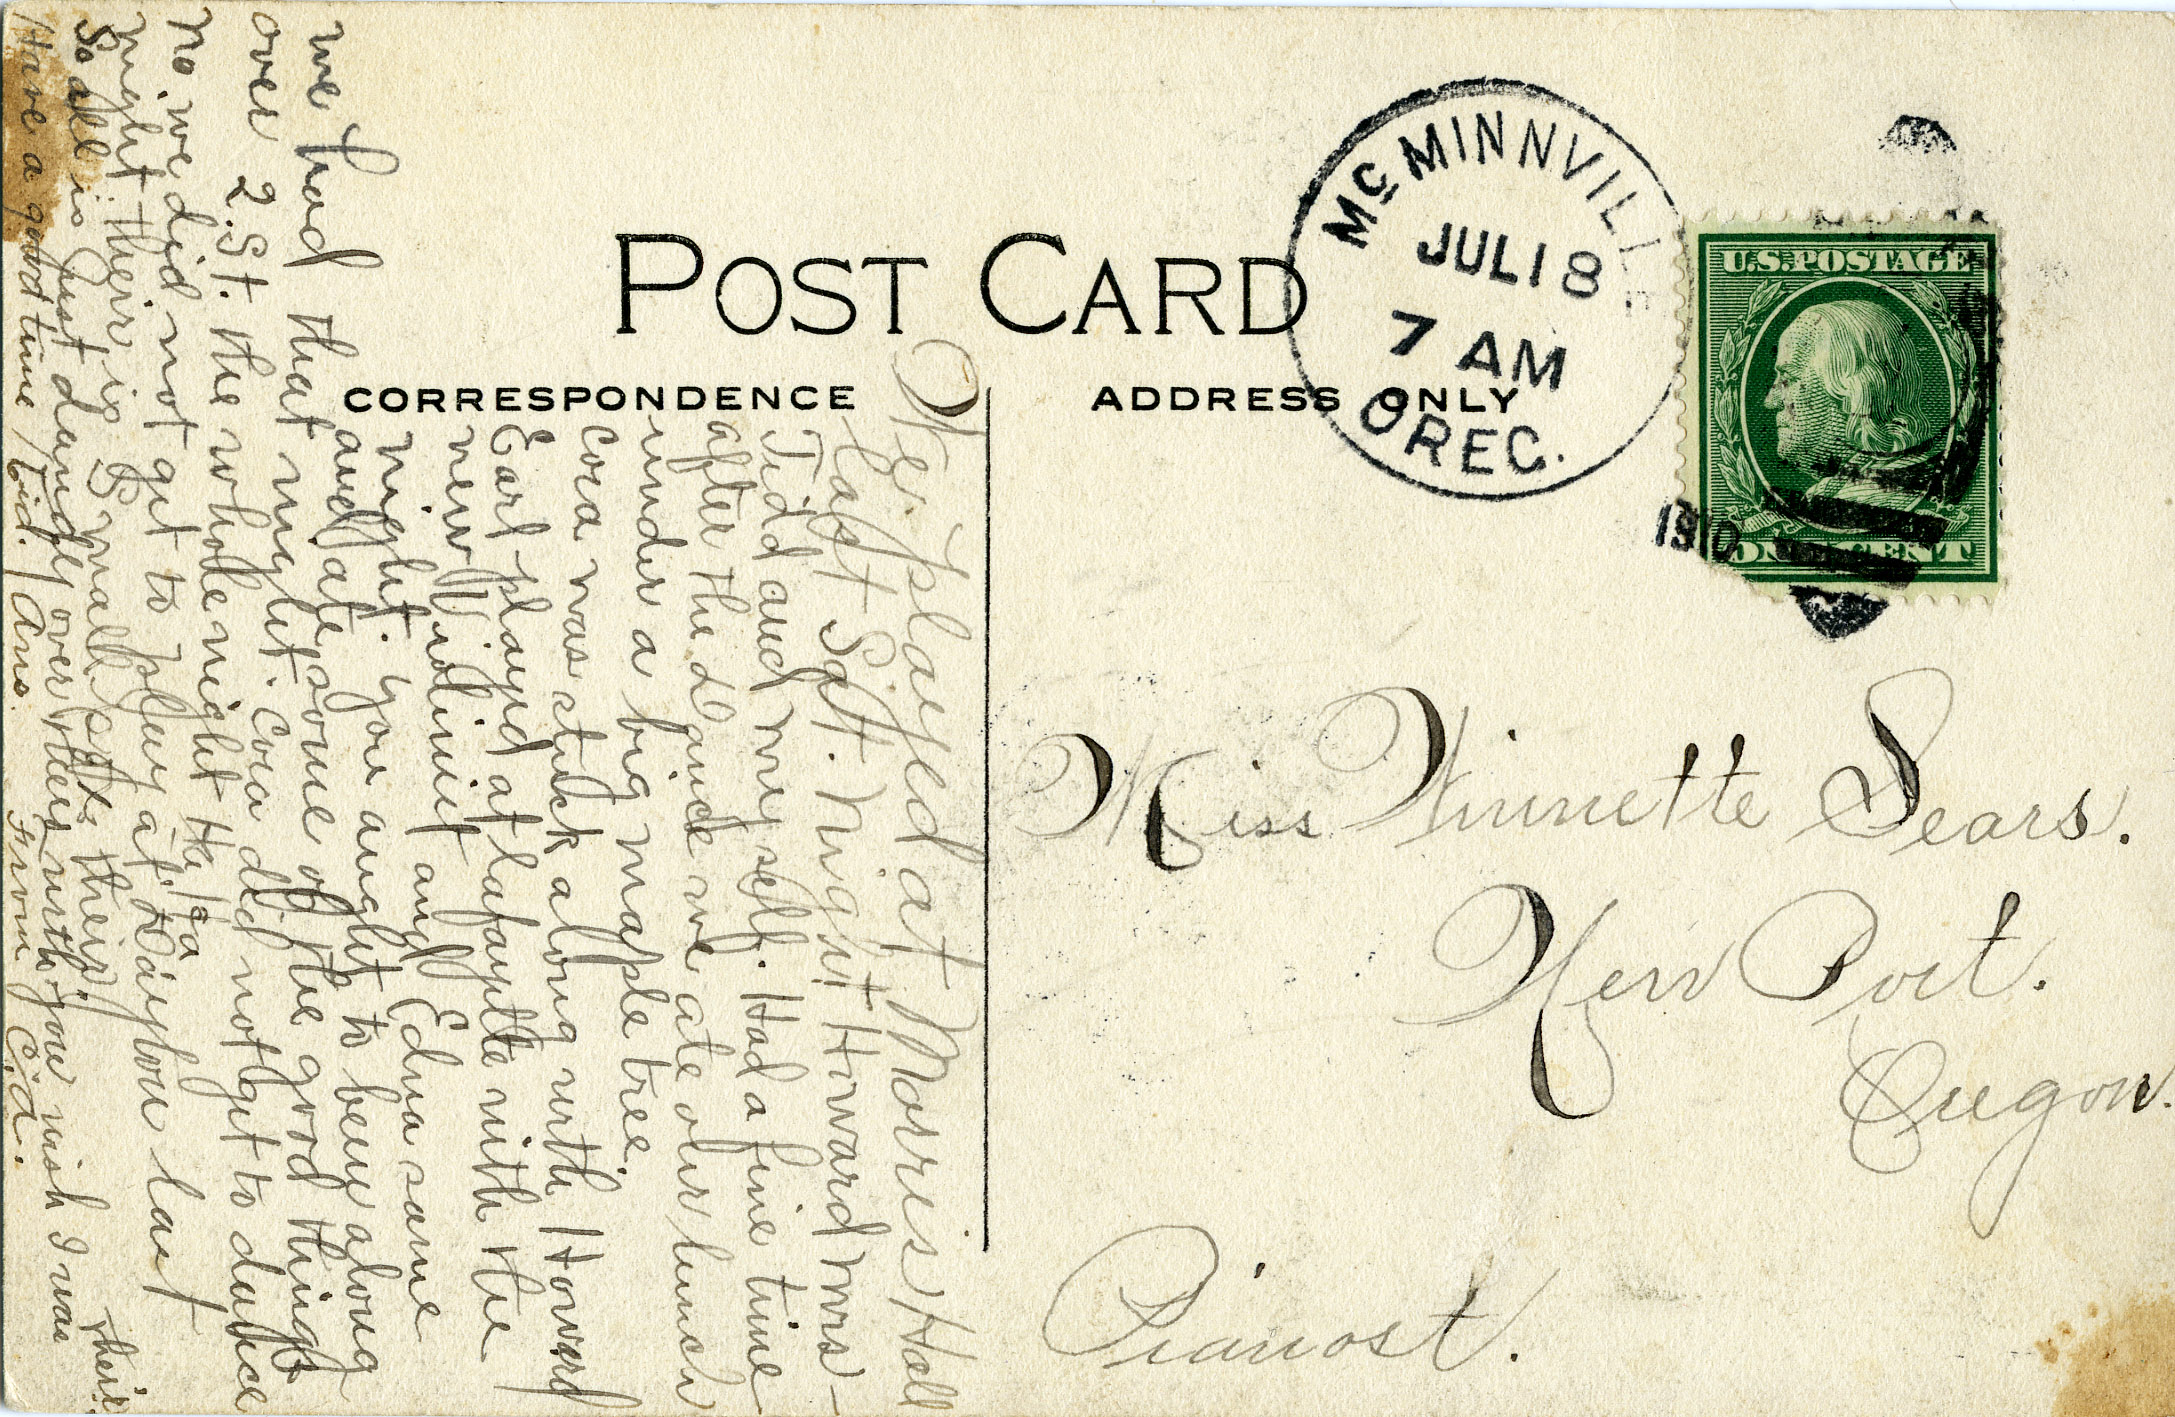 POST CARD
CORRESPONDENCE
ADDRESS ONLY
McMINNVILLE
JUL 18
7 AM
OREG.
1910
U.S. POSTAGE
ONE CENT
Miss Winnette Sears.
New Port.
Oregon.
Pianost.
We played at Morris Hall
last Sat. night Howard mrs-
Tidd and my self. Had a fine time
after the dance we ate our lunch
under a big maple tree.
Cora was stuck along with Howard
Earl played at Lafayette with the
new Violinist and Edna same
night. you aught to been along
and ate some of the good things
we had that night. Cora did not get to dance
over 2. St. the whole night Ha Ha
No we did not get to play at Dayton last
night their is Small their.
So all is just dandy over their with you wish I was their.
Have a good time Cid. Ans. From Cid.